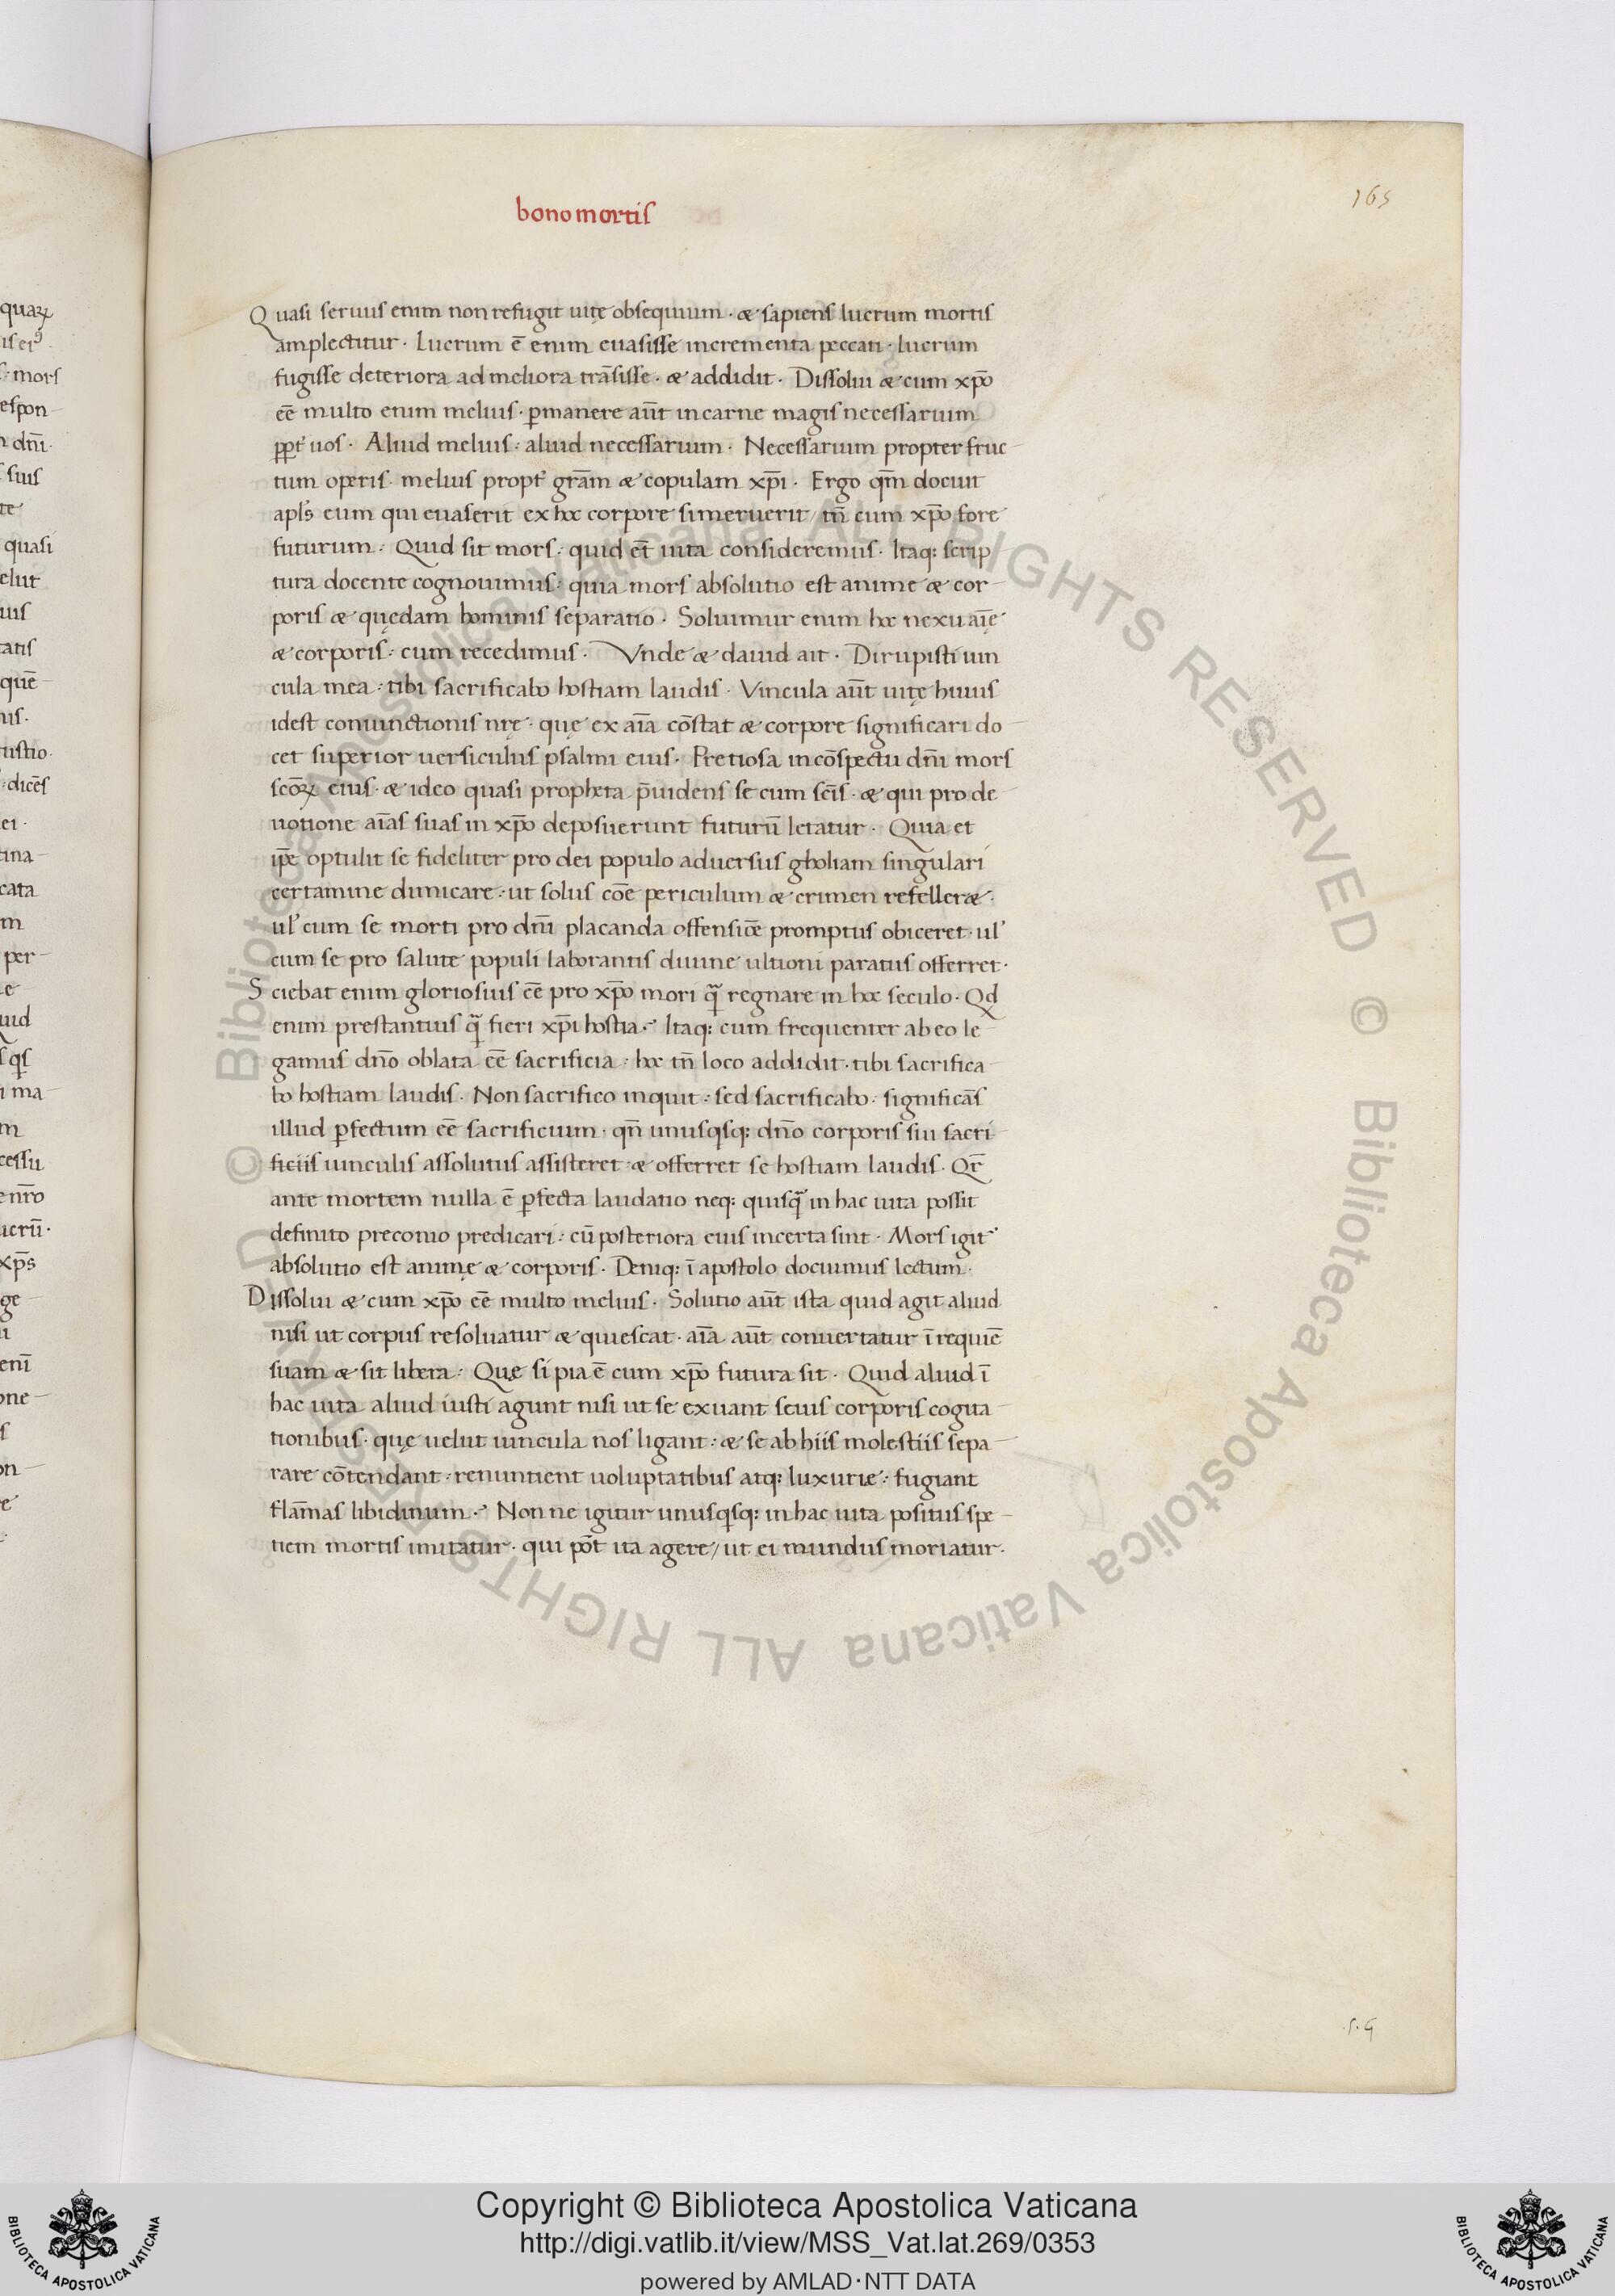 bono mortis
165
Quasi seruus enim non refugit uitę obsequium · & sapiens lucrum mortis
amplectitur · Lucrum ē enim euasisse incrementa peccati · lucrum
fugisse deteriora ad meliora trāsisse · & addidit · Dissolui & cum xp̄o
eē multo enim melius · ꝑmanere aūt in carne magis necessarium
ꝓpt̕ uos · Aliud melius : aliud necessarium · Necessarium propter fruc
tum operis · melius propt̕ grām & copulam xp̄i · Ergo qm̄ docuit
apls̄ eum qui euaserit ex hoc corpore si meruerit / tn̄ cum xp̄o fore
futurum · Quid sit mors : quid et̄ uita consideremus · Itaq: scrip
tura docente cognouimus : quia mors absolutio est anime & cor
poris & quędam hominis separatio · Soluimur enim hoc nexu aīę
& corporis : cum recedimus · Vnde & dauid ait · Dirupisti uin
cula mea : tibi sacrificabo hostiam laudis · Vincula aūt uitę huius
idest coniunctionis nr̄ę · quę ex aīa cōstat & corpore significari do
cet superior uersiculus psalmi eius · Pretiosa in cōspectu dn̄i mors
scōꝝ eius · & ideo quasi propheta p̄uidens se cum scīs · & qui pro de
uotione aīas suas in xp̄o deposuerunt futurū letatur · Quia et
ip̄e optulit se fideliter pro dei populo aduersus gholiam singulari
certamine dimicare : ut solus cōe periculum & crimen refeller& ·
ul̕ cum se morti pro dn̄i placanda offensiōe promptus obiceret · ul̕
cum se pro salute populi laborantis diuine ultioni paratus offerret ·
Sciebat enim gloriosius eē pro xp̄o mori q̄ regnare in hoc seculo · Qd
enim prestantius q̄ fieri xp̄i hostia · Itaq: cum frequenter ab eo le
gamus dn̄o oblata eē sacrificia : hoc tn̄ loco addidit · tibi sacrifica
bo hostiam laudis · Non sacrifico inquit : sed sacrificabo · significās
illud ꝑfectum eē sacrificium · qn̄ unusqsq: dn̄o corporis sui sacri
ficiis uinculis assolutus assisteret · & offerret se hostiam laudis · Qr̄
ante mortem nulla ē ꝑfecta laudatio neq: quisq̄ in hac uita possit
definito preconio predicari : cū posteriora eius incerta sint · Mors igit̕
absolutio est animę & corporis · Deniq: ī apostolo docuimus lectum ·
Dissolui & cum xp̄o eē multo melius · Solutio aūt ista quid agit aliud
nisi ut corpus resoluatur & quiescat · aīa aūt conuertatur ī requiē
suam & sit libera · Quę si pia ē cum xp̄o futura sit · Quid aliud ī
hac uita aliud iusti agunt nisi ut se exuant seuis corporis cogita
tionibus · quę uelut uincula nos ligant : & se ab hiis molestiis sepa
rare cōtendant : renuntient uoluptatibus atq: luxurie : fugiant
flāmas libidinum · Non ne igitur unusqsq: in hac uita positus spe
tiem mortis imitatur · qui pōt ita agere / ut ei mundus moriatur ·
© Biblioteca Apostolica Vaticana ALL RIGHTS RESERVED © Biblioteca Apostolica Vaticana ALL RIGHTS RESERVED
Copyright © Biblioteca Apostolica Vaticana
http://digi.vatlib.it/view/MSS_Vat.lat.269/0353
powered by AMLAD·NTT DATA
BIBLIOTECA APOSTOLICA VATICANA
BIBLIOTECA APOSTOLICA VATICANA